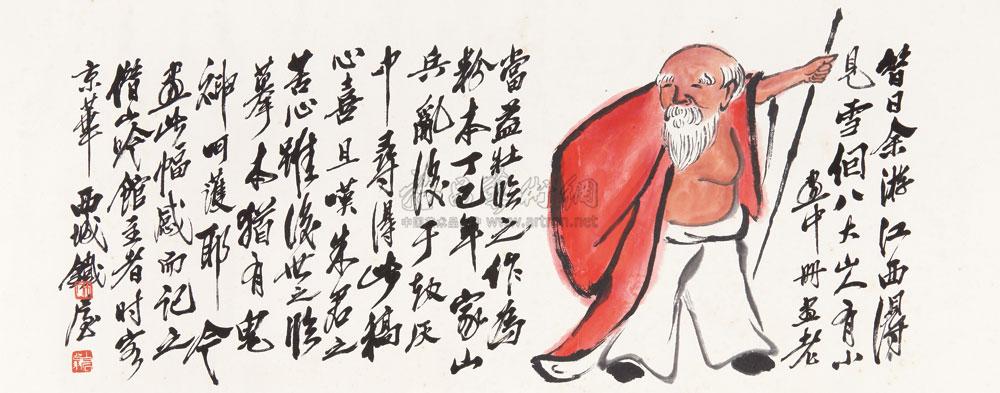 昔日余游江西得
見雪個八大山人有小
畫中冊畫老
當益壯臨之作為
粉本丁巳年家山
兵亂後于敗灰
中尋得此稿
心喜且嘆朱君之
苦心雖後世之臨
摹本猶有鬼
神呵護耶今
畫此幅感而記之
借山吟館主者時客
京華西城鐵屋
www.artron.net